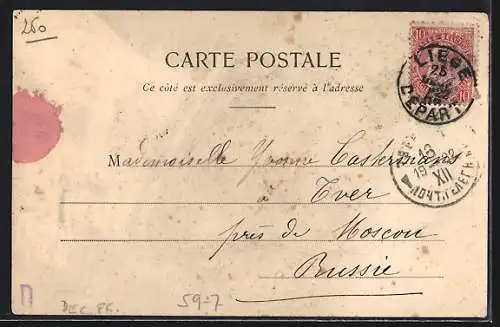 260
CARTE POSTALE
Ce côté est exclusivement réservé à l'adresse
10 10
LIÈGE
25
DÉPART
Mademoiselle Yvonne Castermans
16
XII
à
Tver
près de Moscou
Russie
DEC. PK. 59-7